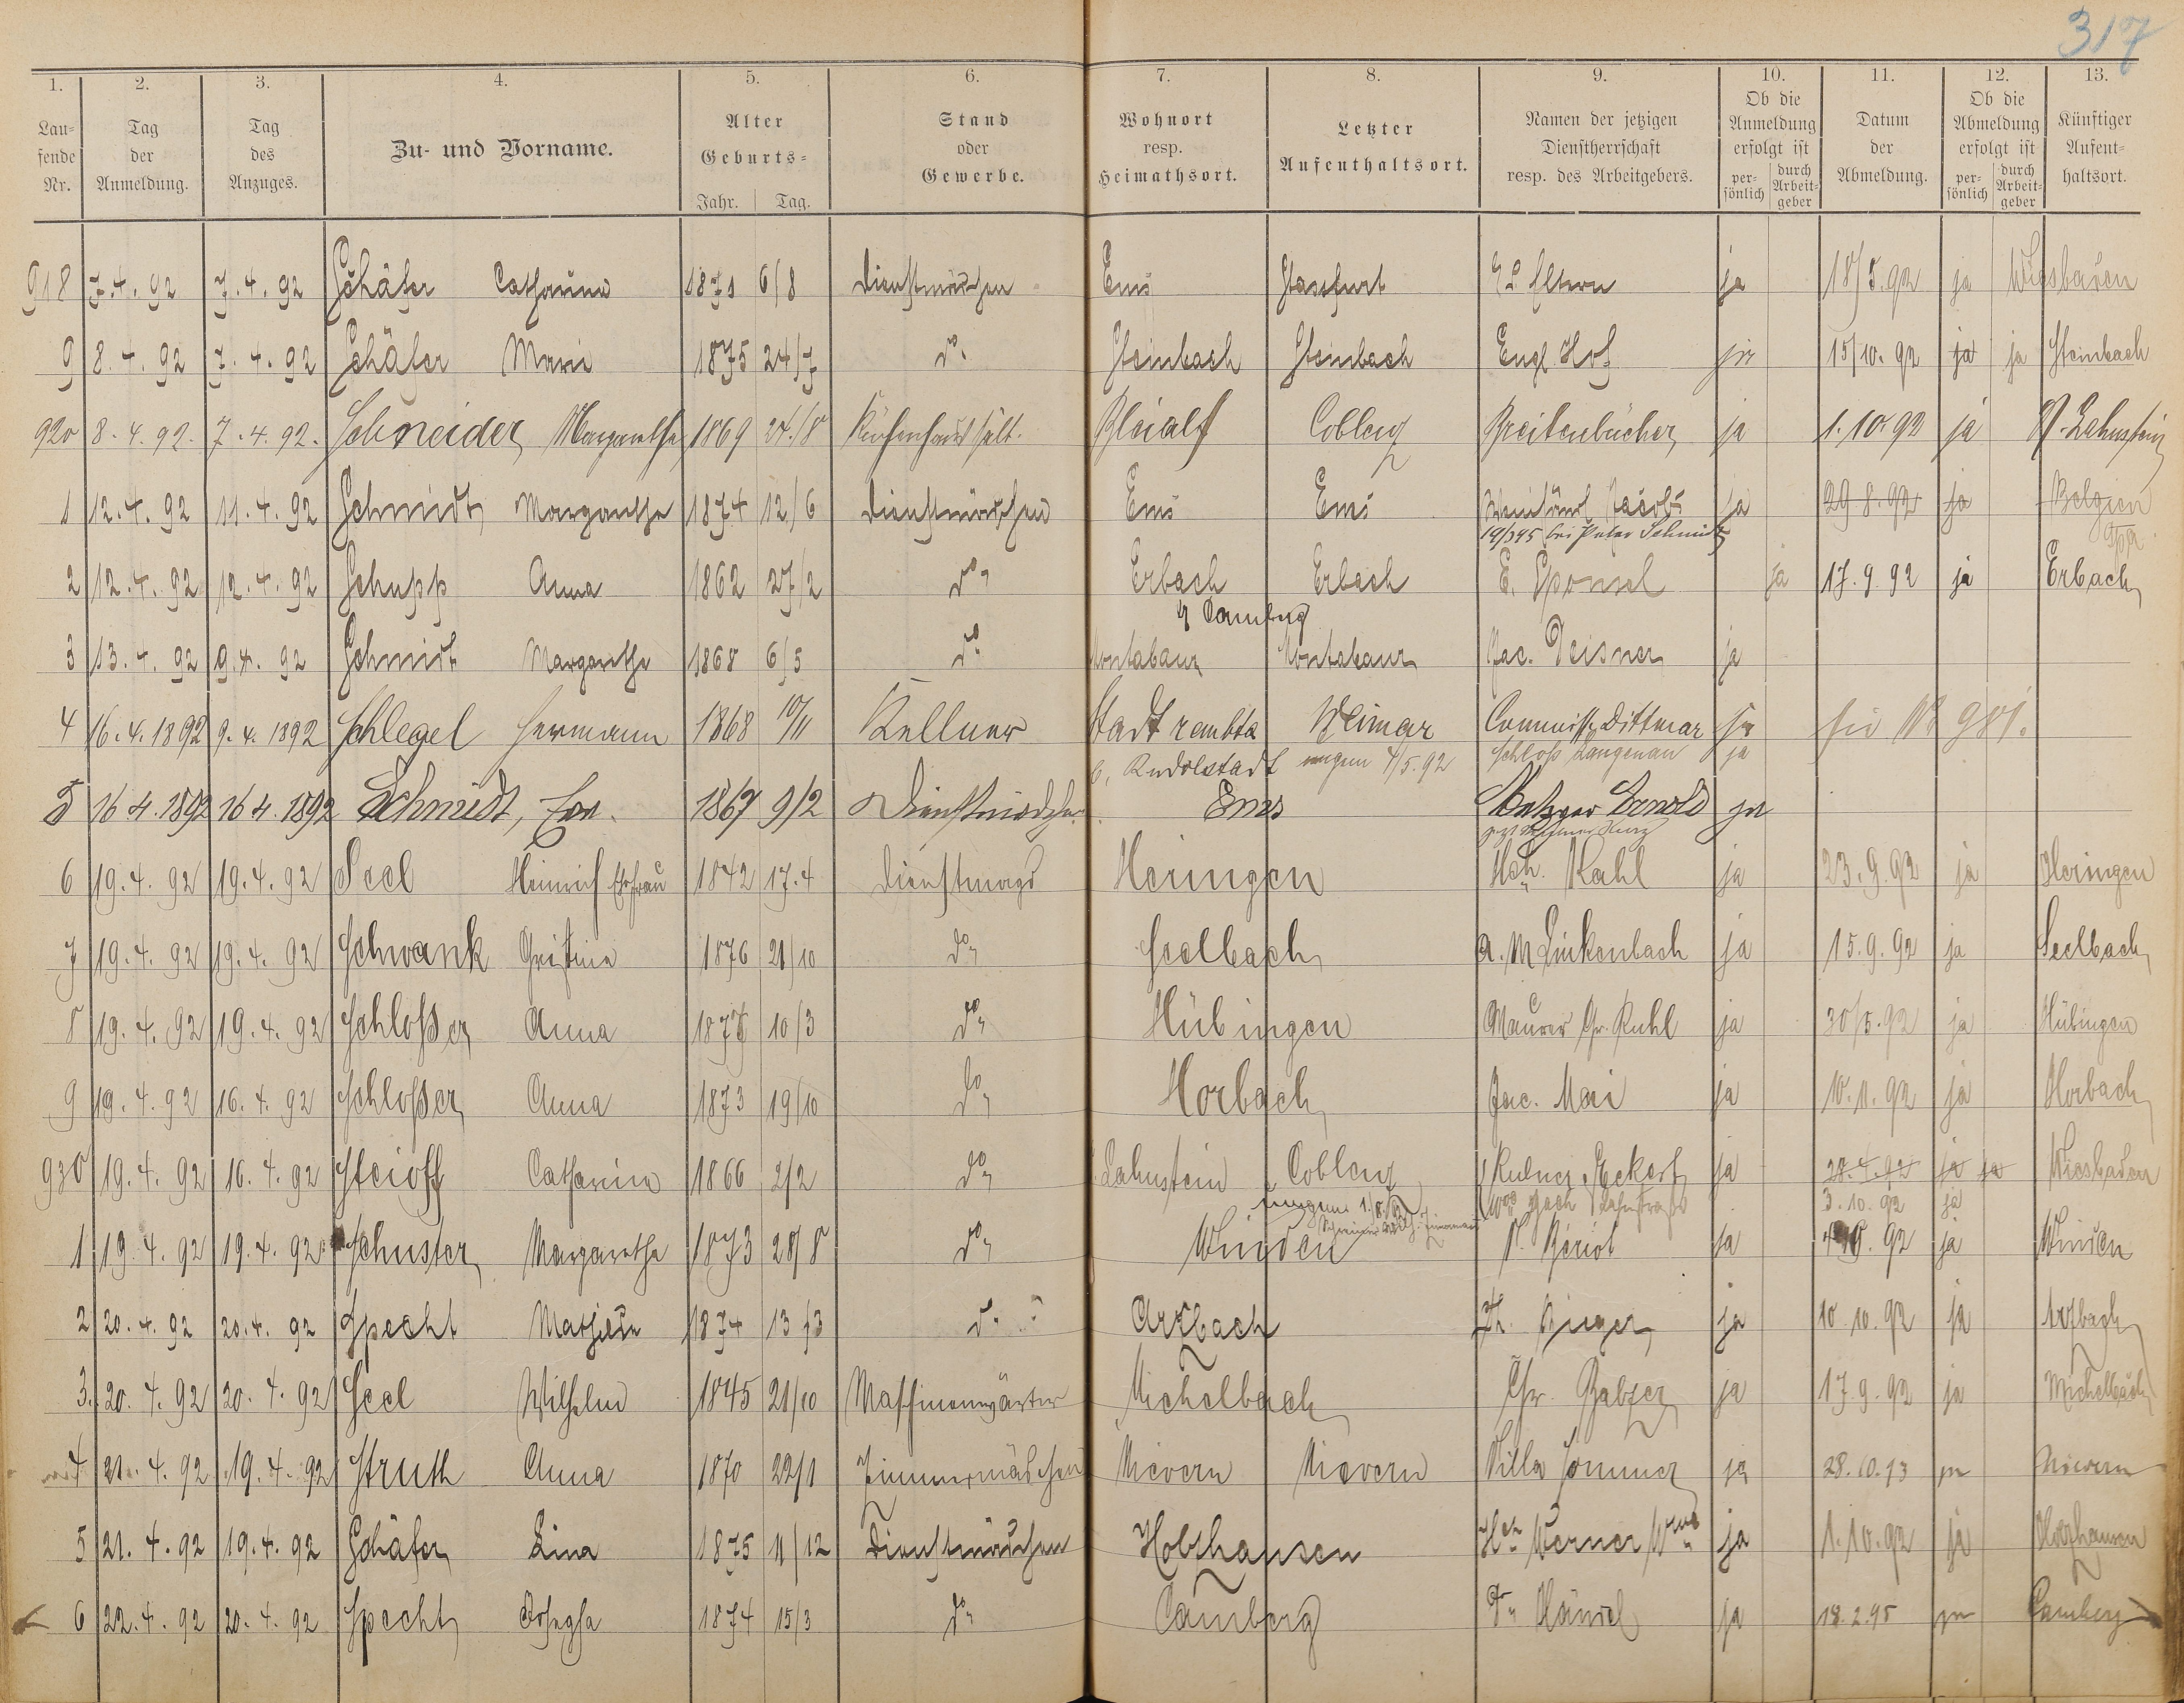 317
1. 2. 3. 4. 5. 6. 7. 8. 9. 10. 11. 12. 13.
Lau=
fende
Nr.
Tag
der
Anmeldung.
Tag
des
Anzuges.
Zu- und Vorname.
Alter
Geburts=
Jahr. Tag.
Stand
oder
Gewerbe.
Wohnort
resp.
Heimathsort.
Letzter
Aufenthaltsort.
Namen der jetzigen
Dienstherrschaft
resp. des Arbeitgebers.
Ob die
Anmeldung
erfolgt ist
per-
sönlich
durch
Arbeit-
geber
Datum
der
Abmeldung.
Ob die
Abmeldung
erfolgt ist
per-
sönlich
durch
Arbeit-
geber
Künftiger
Aufent-
haltsort.
918 7.4.92 7.4.92 Schäfer Catharina 1871 6/8 Dienstmädchen Ems Eltern ja 18/5.92 ja Wiesbaden
9 8.4.92 7.4.92 Schäfer Marie 1875 24/7 do. Steinbach Steinbach Engl. Hof ja 15/10.92 ja ja Steinbach
920 8.4.92. 7.4.92. Schneider Margarethe 1869 24/8 Bleialf Coblenz Breitenbücher ja 1.10.92 ja N. Lahnstein
1 12.4.92 11.4.92 Schmidt Margarethe 1874 12/6 Dienstmädchen Ems Ems Jacobs ja 29.8.92 ja Belgien
bei Peter Schmidt
2 12.4.92 12.4.92 Schupp Anna 1862 27/2 do Erbach Erbach E. Sponsel ja 17.9.92 ja Erbach
Camberg
3 13.4.92 9.4.92 Schmidt Margarethe 1868 6/5 do Montabaur Montabaur Jac. Deisner ja
4 16.4.1892 9.4.1892 Schlegel Hermann 1868 10/11 Kellner Stadtrembta Weimar Commiss. Dittmar ja No 981.
b. Rudolstadt 4/5.92 Schloß Langenau ja
5 16 4.1892 16 4.1892 Schmidt, Eva. 1867 9/2 Dienstmädchen Ems Metzger Arnold ja
6 19.4.92 19.4.92 Seel Heinrich Ehefrau 1842 17.4 Dienstmagd Heringen Hch. Kahl ja 23.9.92 ja Heringen
7 19.4.92 19.4.92 Schwank Christine 1876 21/10 do Seelbach A. M Linkenbach ja 15.9.92 ja Seelbach
8 19.4.92 19.4.92 Schloßer Anna 1877 10/3 do Hübingen Maurer Chr. Kuhl ja 30/5.92 ja Hübingen
9 19.4.92 16.4.92 Schloßer Anna 1873 19/10 do Horbach Jac. Mai ja 10.11.92 ja Horbach
930 19.4.92 16.4.92 Steioff Catharine 1866 2/2 do Lahnstein Coblenz Eckert ja 28.4.92 ja ja Wiesbaden
3.10.92 ja
1 19.4.92 19.4.92 Schuster Margarethe 1873 28/8 do Winden P. Bériot ja 92 ja Winden
2 20.4.92 20.4.92 Specht Mathilde 1874 13/3 do. Arzbach ja 10.10.92 ja Arzbach
3. 20.4.92 20.4.92 Seel Wilhelm 1845 21/10 Maschinenwärter Michelbach Chr. Balzer ja 17.9.92 ja Michelbach
4 21.4.92 19.4.92 Struth Anna 1870 22/1 Zimmermädchen Nievern Nievern Villa Sommer ja 28.10.93 ja Nievern
5 21.4.92 19.4.92 Schäfer Lina 1875 11/12 Dienstmädchen Holzhausen Hch Werner Wwe ja 1.10.92 ja Holzhausen
6 22.4.92 20.4.92 Specht Josepha 1874 15/3 do Camberg ja 18.2.95 ja Camberg